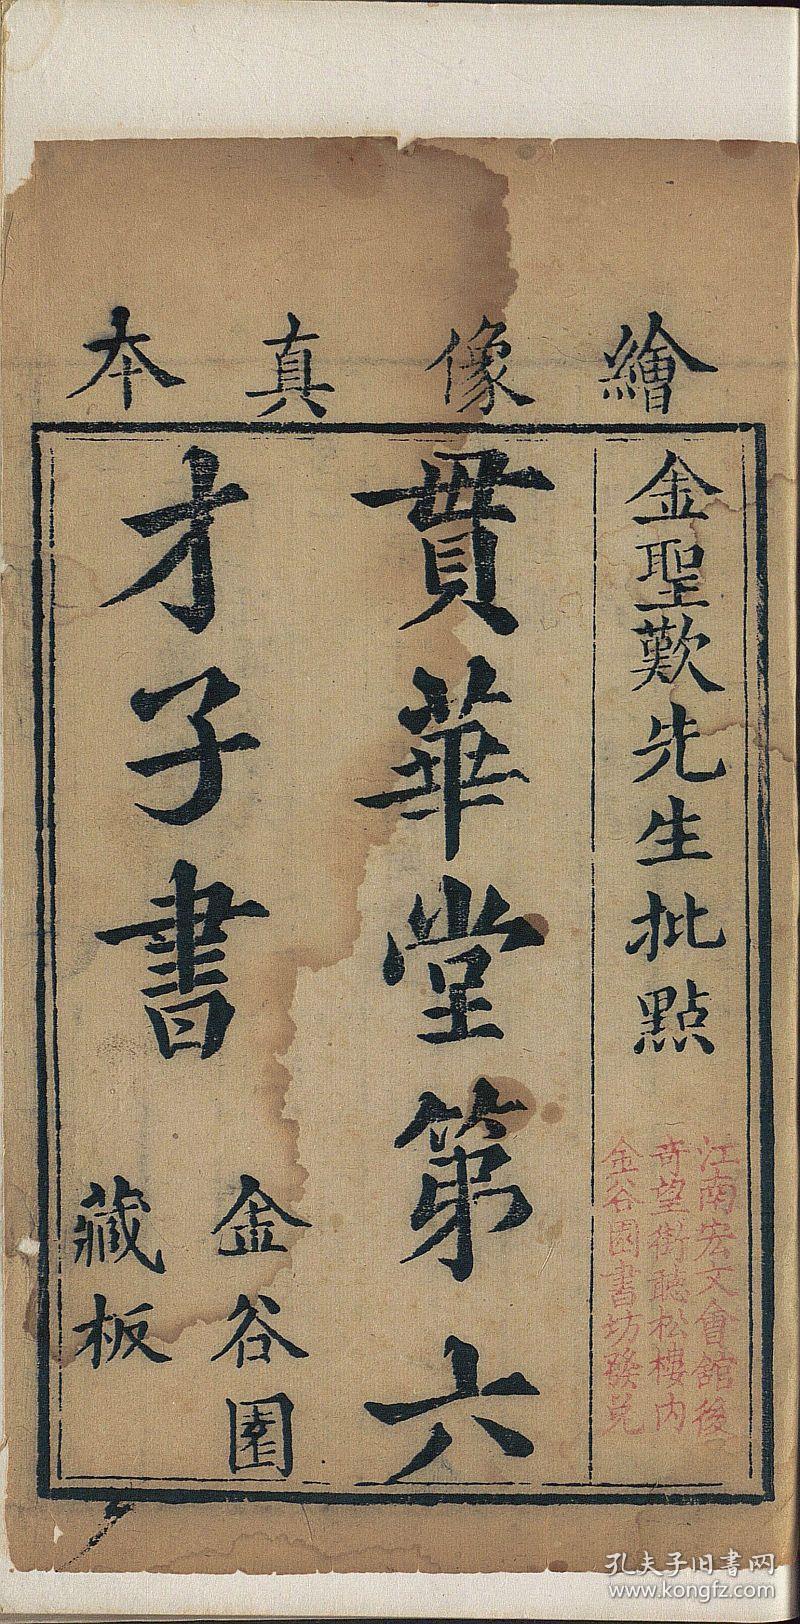 繪像真本
金聖歎先生批點
江南宏文會舘後
奇望街聽松樓內
金谷園書坊發兌
貫華堂第六
才子書
金谷園
藏板
孔夫子旧书网
www.kongfz.com